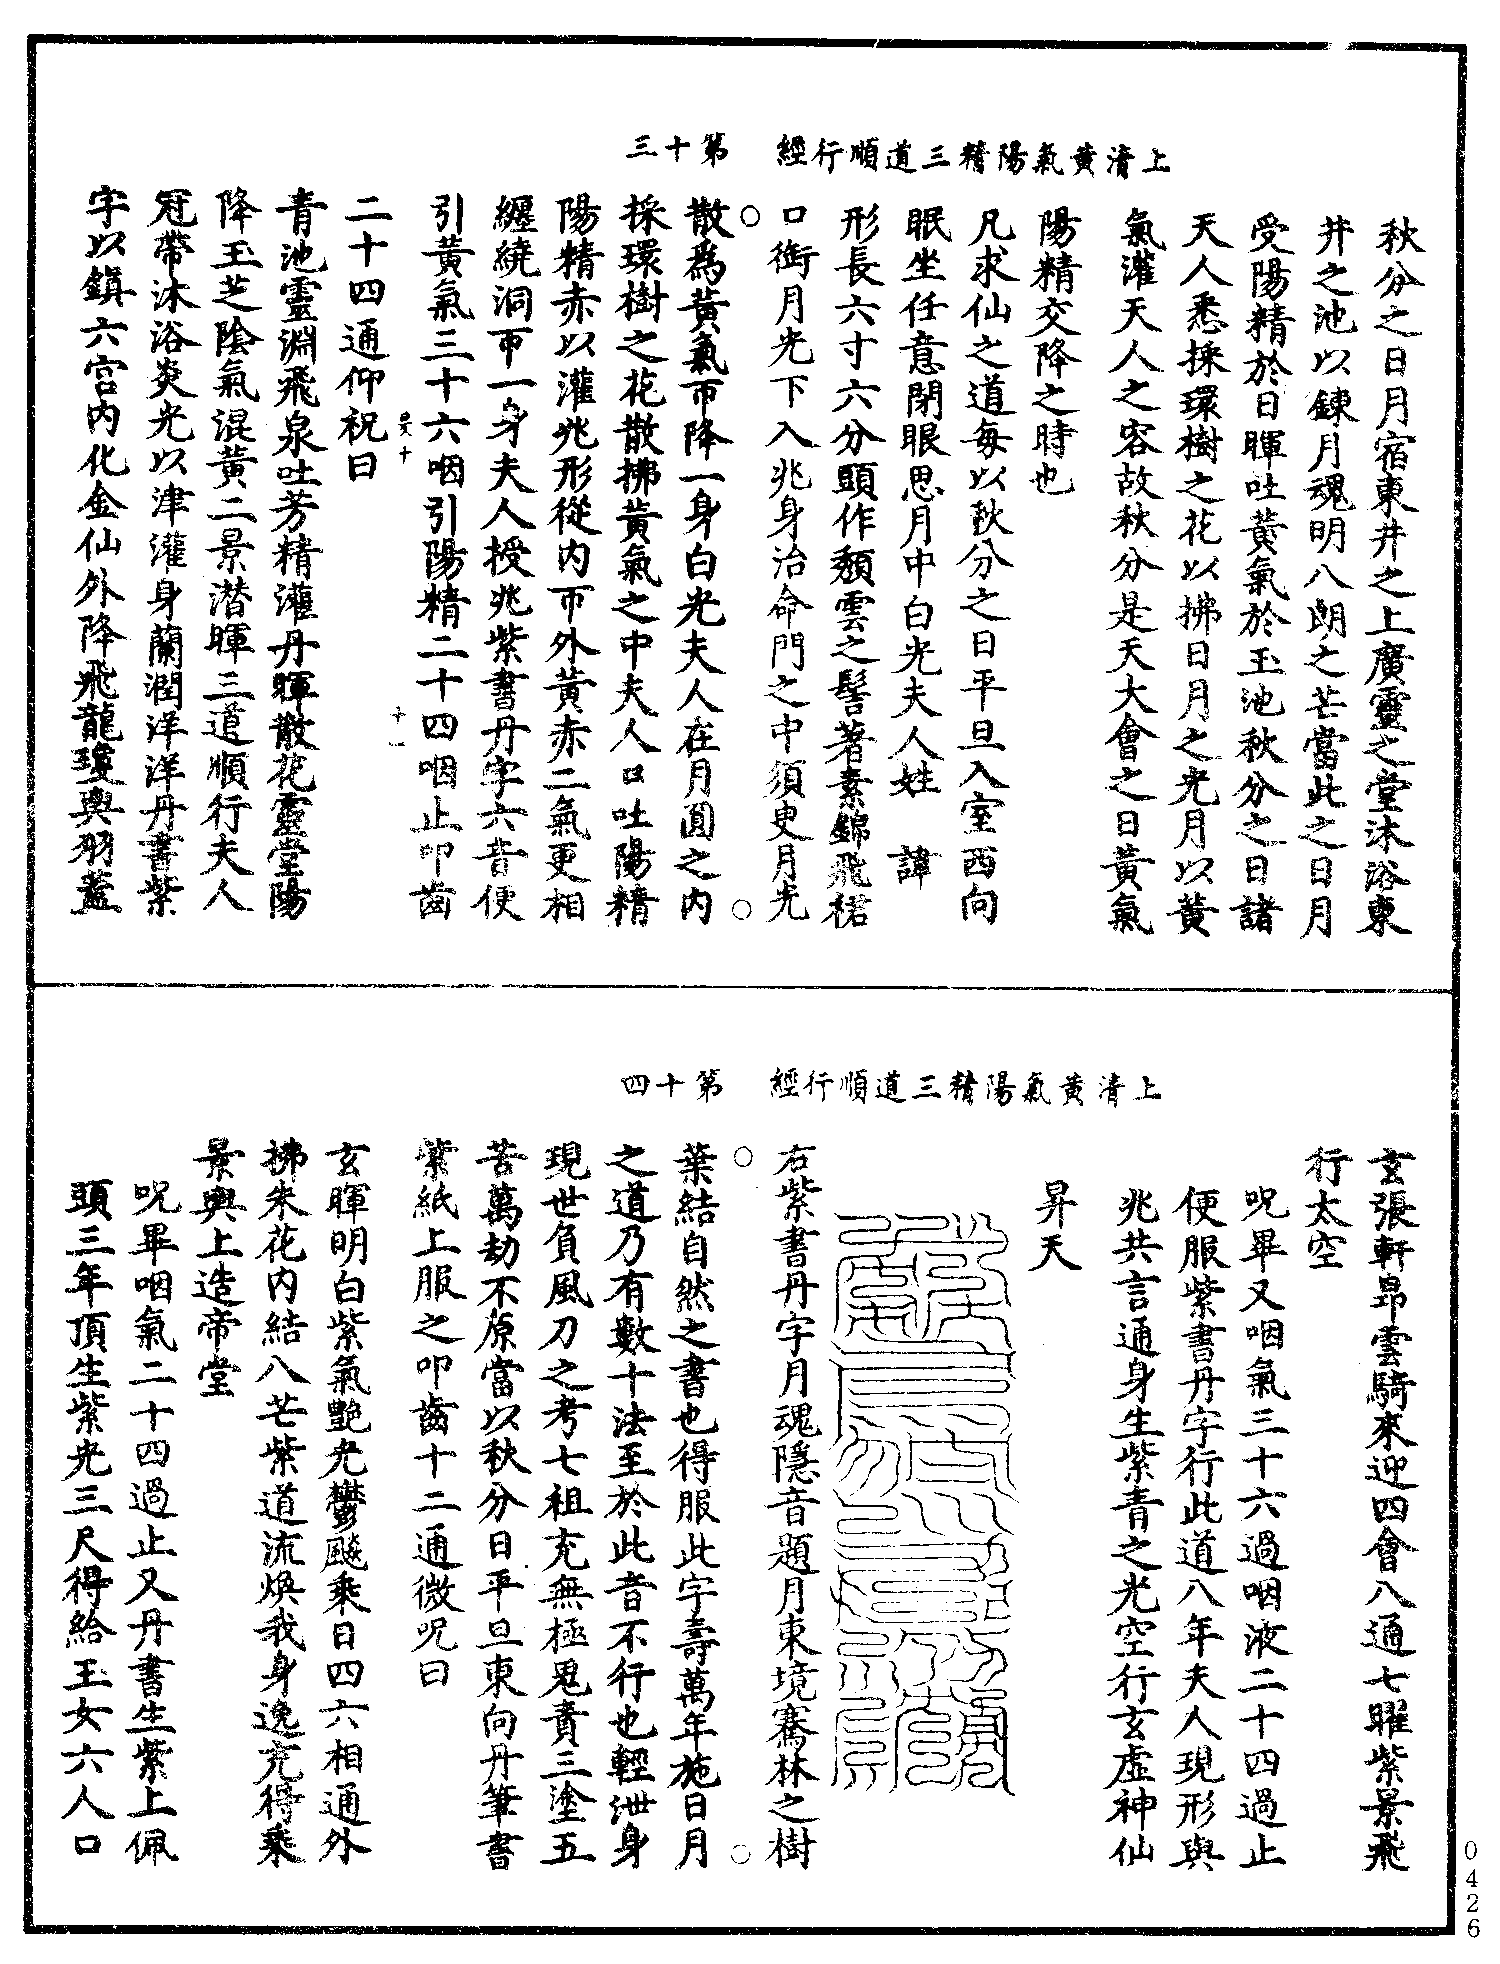 上清黃氣陽精三道順行經　第十三
秋分之日月宿東井之上廣靈之堂沐浴東
井之池以鍊月魂明八朗之芒當此之日月
受陽精於日暉吐黃氣於玉池秋分之日諸
天人悉採環樹之花以拂日月之光月以黃
氣灌天人之容故秋分是天大會之日黃氣
陽精交降之時也
凡求仙之道每以秋分之日平旦入室西向
眠坐任意閉眼思月中白光夫人姓　諱
形長六寸六分頭作頹雲之髻著素錦飛裙
口銜月光下入兆身治命門之中須臾月光
散為黃氣帀降一身白光夫人在月圓之內
採環樹之花散拂黃氣之中夫人口吐陽精
陽精赤以灌兆形從內帀外黃赤二氣更相
纏繞洞帀一身夫人授兆紫書丹字六音便
引黃氣三十六咽引陽精二十四咽止叩齒
二十四通仰祝曰
青池靈淵飛泉吐芳精灌丹暉散花靈堂陽
降玉芝陰氣混黃二景潛暉三道順行夫人
冠帶沐浴炎光以津灌身蘭潤洋洋丹書紫
字以鎮六宮內化金仙外降飛龍瓊輿羽蓋
上清黃氣陽精三道順行經　第十四
玄張軒昂雲騎來迎四會八通七曜紫景飛
行太空
呪畢又咽氣三十六過咽液二十四過止
便服紫書丹字行此道八年夫人現形與
兆共言通身生紫青之光空行玄虛神仙
昇天
右紫書丹字月魂隱音題月東境騫林之樹
葉結自然之書也得服此字壽萬年施日月
之道乃有數十法至於此音不行也輕泄身
現世負風刀之考七祖充無極鬼責三塗五
苦萬劫不原當以秋分日平旦東向丹筆書
紫紙上服之叩齒十二通微呪曰
玄暉明白紫氣艷光鬱飈乘日四六相通外
拂朱花內結八芒紫道流煥我身逸充得乘
景輿上造帝堂
呪畢咽氣二十四過止又丹書生紫上佩
頭三年頂生紫光三尺得給玉女六人口
0426